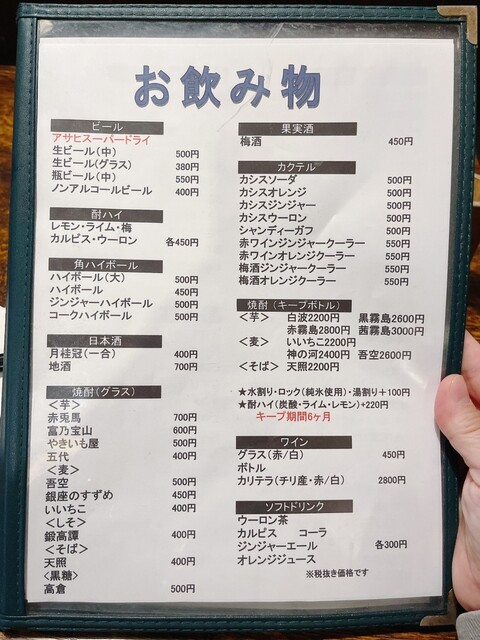 お飲み物
ビール
アサヒスーパードライ
生ビール(中) 500円
生ビール(グラス) 380円
瓶ビール(中) 550円
ノンアルコールビール 400円
酎ハイ
レモン・ライム・梅
カルピス・ウーロン 各450円
角ハイボール
ハイボール(大) 500円
ハイボール 450円
ジンジャーハイボール 500円
コークハイボール 500円
日本酒
月桂冠(一合) 400円
地酒 700円
焼酎(グラス)
<芋>
赤兎馬 700円
富乃宝山 600円
やきいも屋 500円
五代 400円
<麦>
吾空 500円
銀座のすずめ 450円
いいちこ 400円
<しそ>
鍛高譚 400円
<そば>
天照 400円
<黒糖>
高倉 500円
果実酒
梅酒 450円
カクテル
カシスソーダ 500円
カシスオレンジ 500円
カシスジンジャー 500円
カシスウーロン 500円
シャンディーガフ 500円
赤ワインジンジャークーラー 550円
赤ワインオレンジクーラー 550円
梅酒ジンジャークーラー 550円
梅酒オレンジクーラー 550円
焼酎(キープボトル)
<芋> 白波2200円 黒霧島2600円
赤霧島2800円 茜霧島3000円
<麦> いいちこ2200円
神の河2400円 吾空2600円
<そば> 天照2200円
★水割り・ロック(純氷使用)・湯割り+100円
★酎ハイ(炭酸・ライム・レモン)+220円
キープ期間6ヶ月
ワイン
グラス(赤/白) 450円
ボトル
カリテラ(チリ産・赤/白) 2800円
ソフトドリンク
ウーロン茶
カルピス コーラ
ジンジャーエール 各300円
オレンジジュース
※税抜き価格です